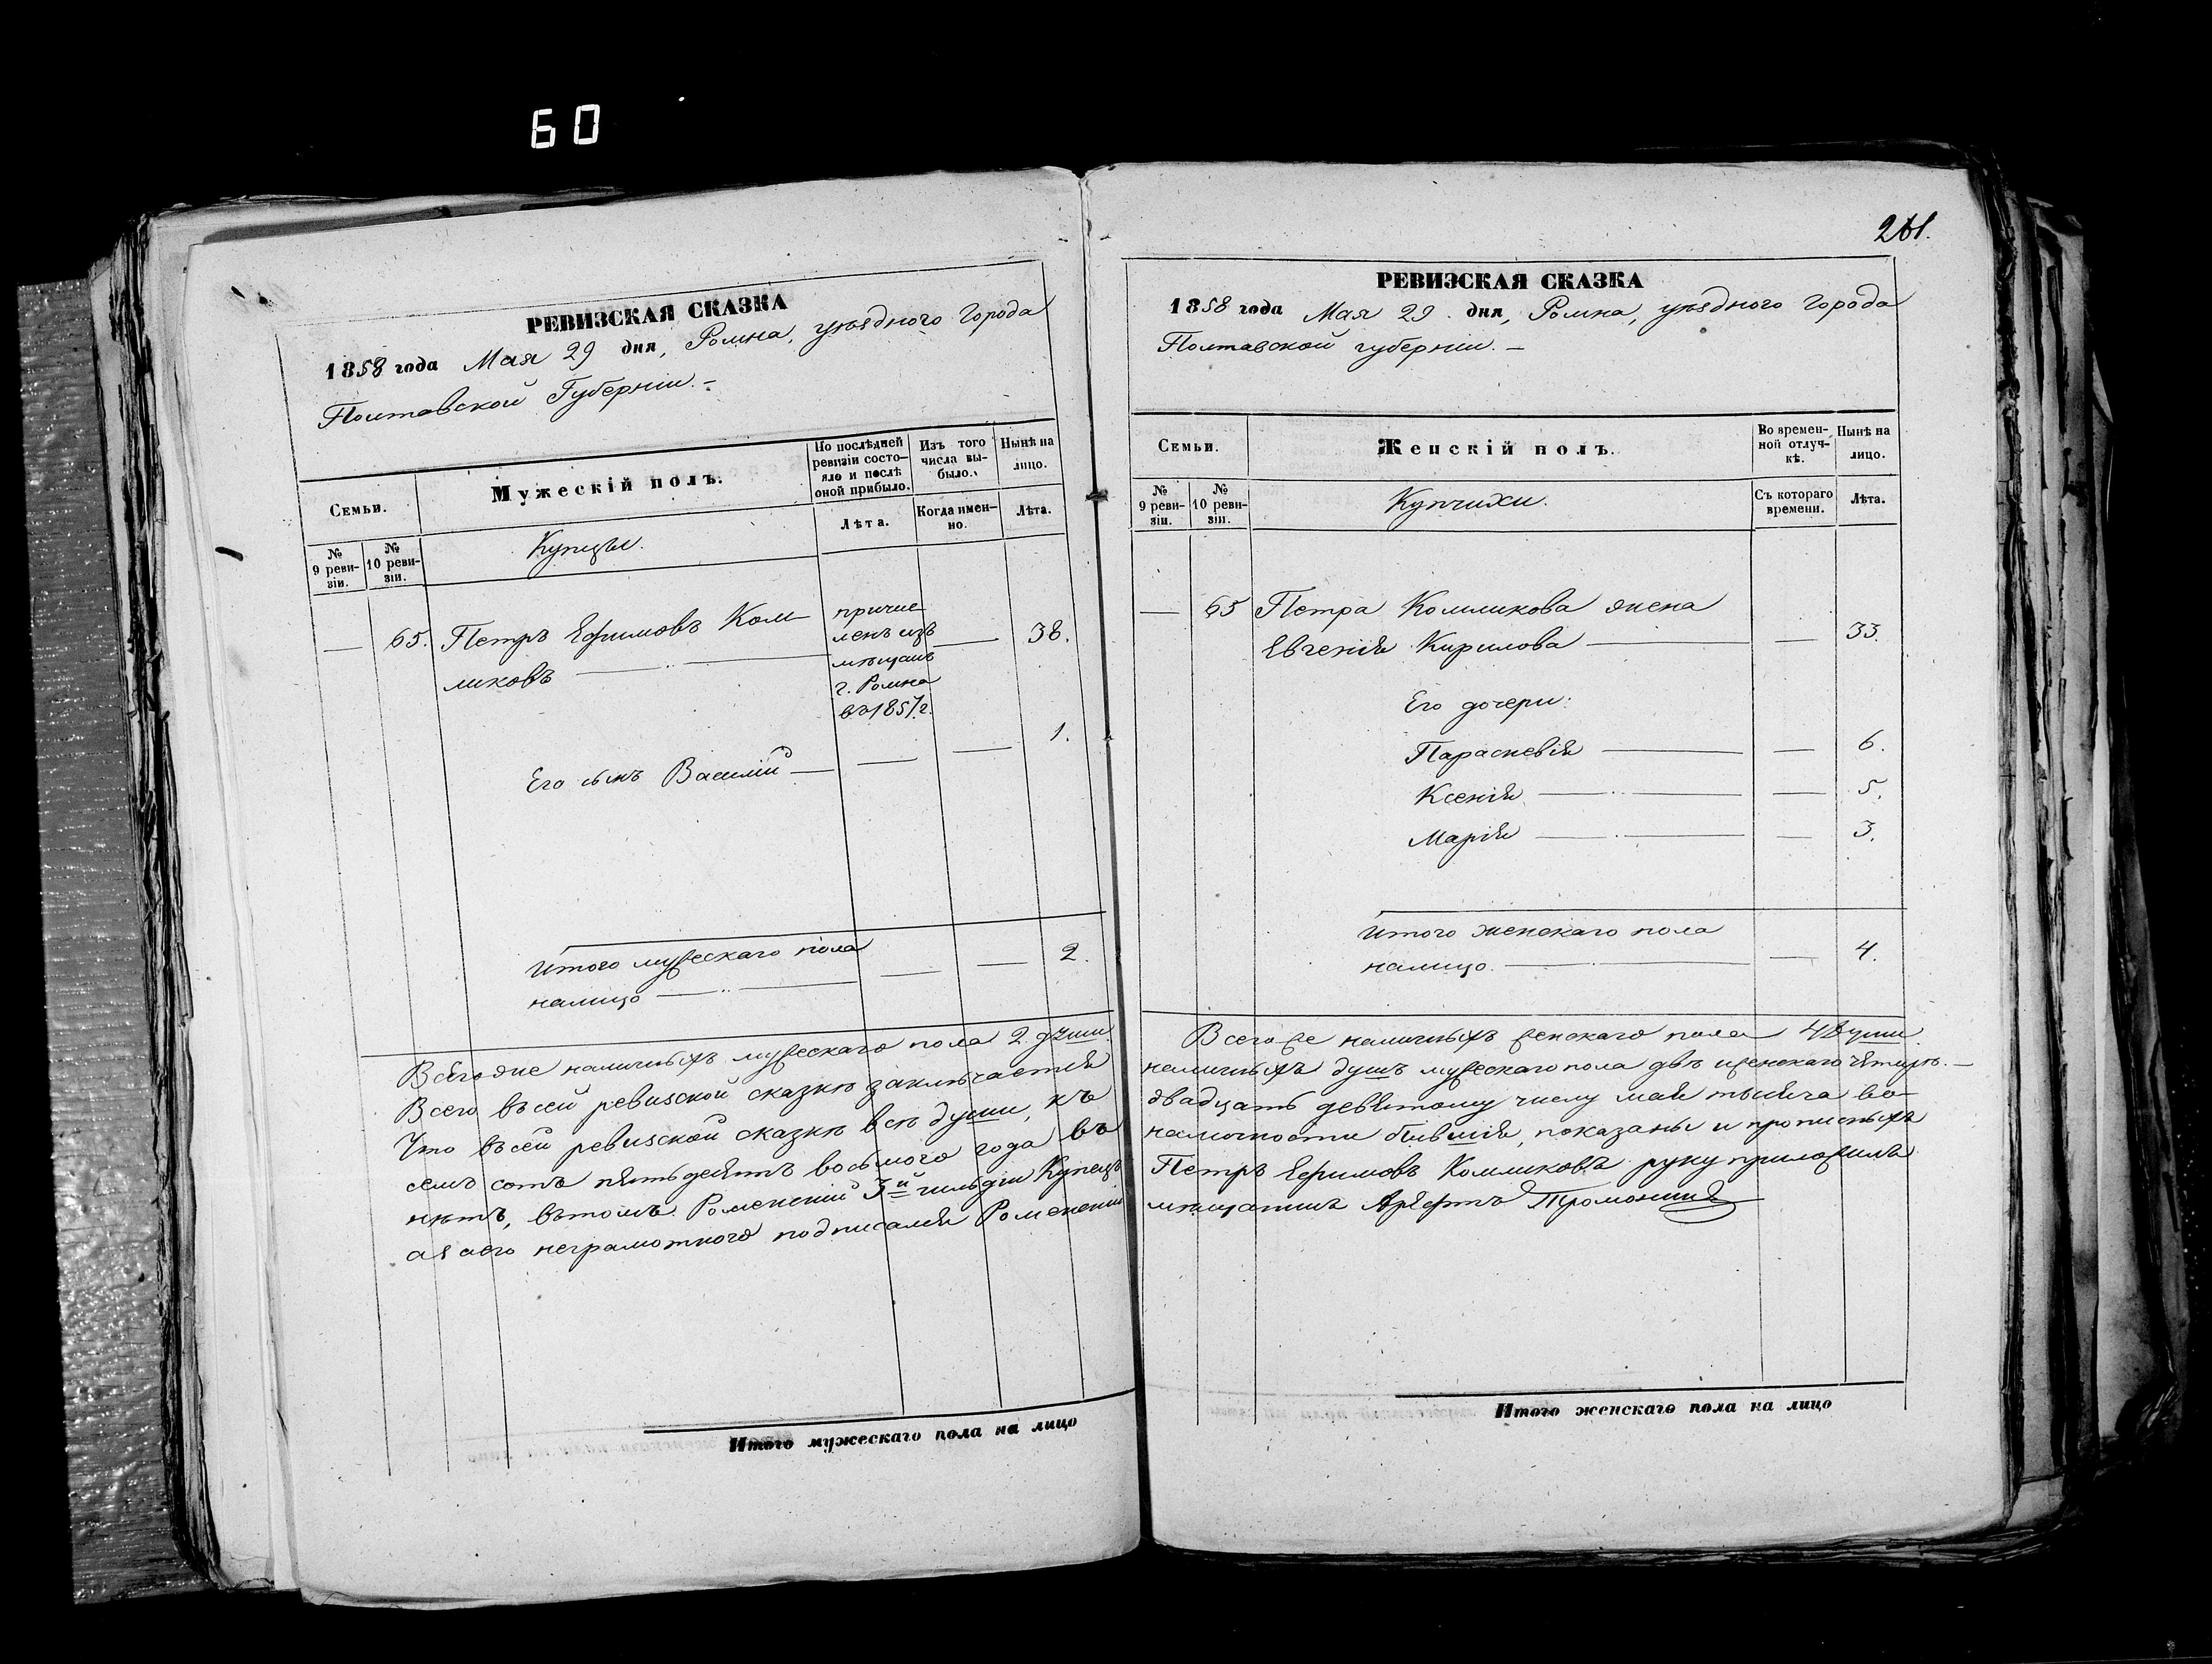 60
РЕВИЗСКАЯ СКАЗКА
1858 года Мая 29 дня, Ромна, уѣзднаго Города
Полтавской Губерніи.-
Семьи.
Мужескій полъ.
По послѣдней ревизіи состо-
яло и послѣ
оной прибыло.
Изъ того
числа вы-
было.
Нынѣ на
лицо.
№
9 реви-
зіи.
№
10 реви-
зіи.
Купцы.
Лѣта.
Когда имен-
но.
Лѣта.
— 65. Петръ Ефимовъ Ком-
ликовъ
причис-
ленъ изъ
мѣщанъ
г. Ромна
въ 1857 г.
— 38.
Его сынъ Василій — — — 1.
Итого мужескаго пола
налицо — — 2.
Всего же наличныхъ мужескаго пола 2 души
Всего въ сей ревизской сказкѣ заключается
Что въ сей ревизской сказкѣ всѣ души, къ
семь сотъ пятьдесятъ восьмого года въ
нѣтъ, въ томъ Роменскій 3й гильдіи Купецъ
а за его неграмотного подписался Роменскій
Итого мужескаго пола на лицо
261.
РЕВИЗСКАЯ СКАЗКА
1858 года Мая 29. дня, Ромна, уѣзднаго Города
Полтавской губерніи.-
Семьи.
Женскій полъ.
Во времен-
ной отлуч-
кѣ.
Нынѣ на
лицо.
№
9 реви-
зіи.
№
10 реви-
зіи.
Купчихи.
Съ котораго
времени.
Лѣта.
— 65 Петра Комликова жена
Евгенія Кирилова — — 33.
Его дочери:
Параскевія — — 6.
Ксенія — — 5.
Марія — — 3.
Итого женскаго пола
налицо. — — 4.
Всего же наличныхъ женскаго пола 4 души
наличныхъ душъ мужескаго пола двѣ и женскаго четыре.—
двадцать девятому числу мая тысяча во-
наличности бывшія, показаны и прописныхъ
Петръ Ефимовъ Комликовъ руку приложилъ
мѣщанинъ
Итого женскаго пола на лицо